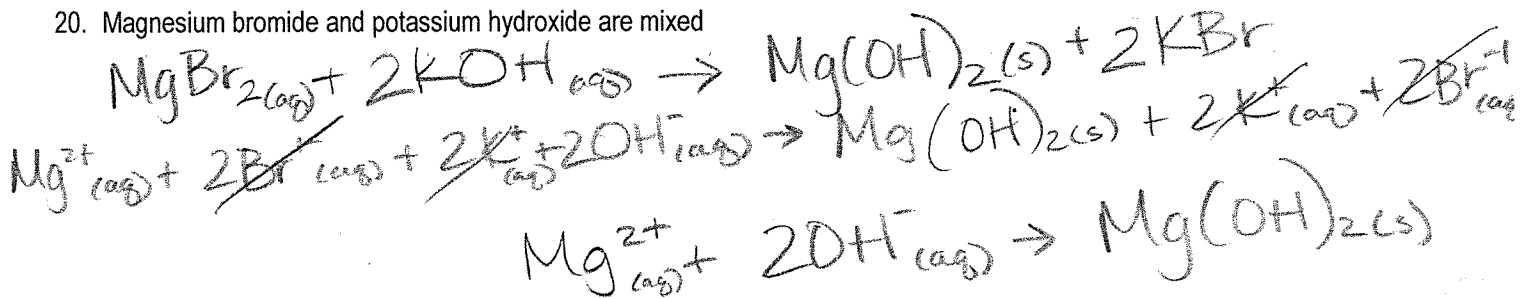 20. Magnesium bromide and potassium hydroxide are mixed
MgBr₂(aq) + 2KOH(aq) → Mg(OH)₂(s) + 2KBr
Mg²⁺(aq) + 2Br⁻(aq) + 2K⁺(aq) + 2OH⁻(aq) → Mg(OH)₂(s) + 2K⁺(aq) + 2Br⁻¹(aq
Mg²⁺(aq) + 2OH⁻(aq) → Mg(OH)₂(s)